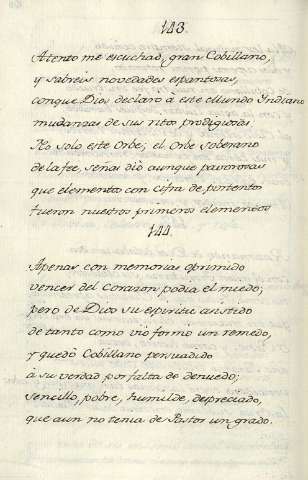 143.
Atento me escuchad, gran Cobillano,
y sabreis novedades espantosas,
conque Dios declarò à este Mundo Indiano
mudanzas de sus ritos prodigiosas
No solo este Orbe; el Orbe soberano
de la fee, señas diò aunque pavorosas
que elementos con cifra de portentos
fueron nuestros primeros elementos
144.
Apenas con memorias oprimido
vencer del Corazon podia el miedo;
pero de Dios su espiritu asistido
de tanto como viò formò un remedo,
y quedò Cobillano persuadido
à su verdad por falta de denuedo;
sencillo, pobre, humilde, depreciado,
que aun no tenia de Pastor un grado.